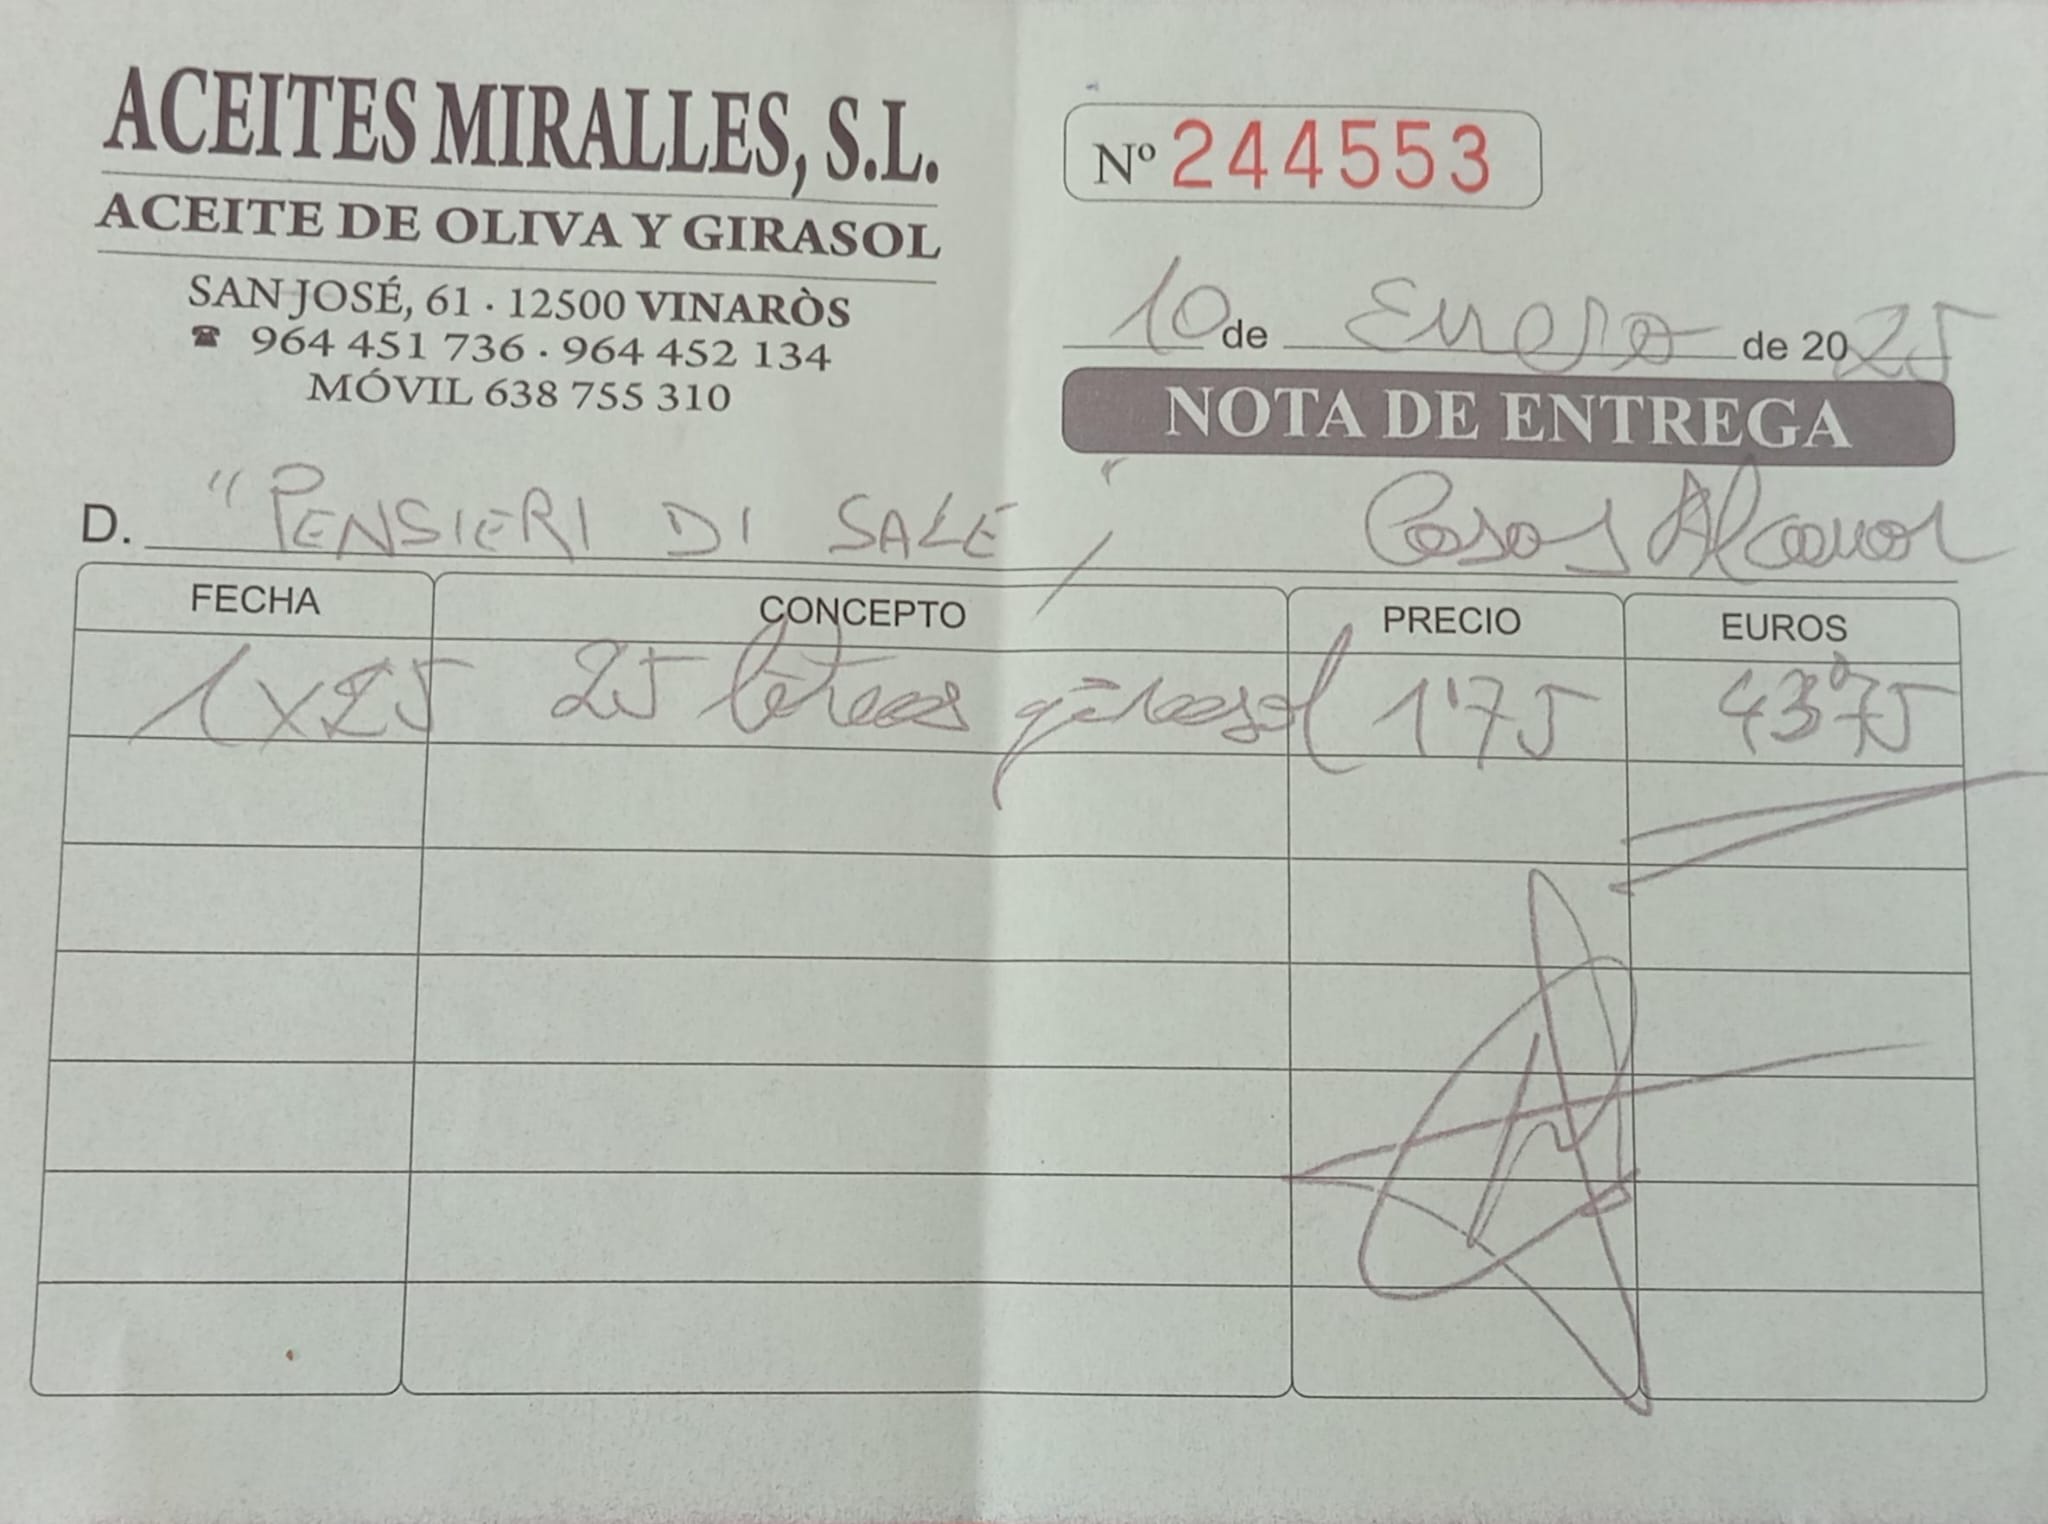 ACEITES MIRALLES, S.L.
ACEITE DE OLIVA Y GIRASOL
SAN JOSÉ, 61 · 12500 VINARÒS
☎ 964 451 736 · 964 452 134
MÓVIL 638 755 310
Nº 244553
10 de Enero de 2025
NOTA DE ENTREGA
D. "PENSIERI DI SALE" Casas Alcanar
FECHA CONCEPTO PRECIO EUROS
1x25 25 litros girasol 1'75 43'75